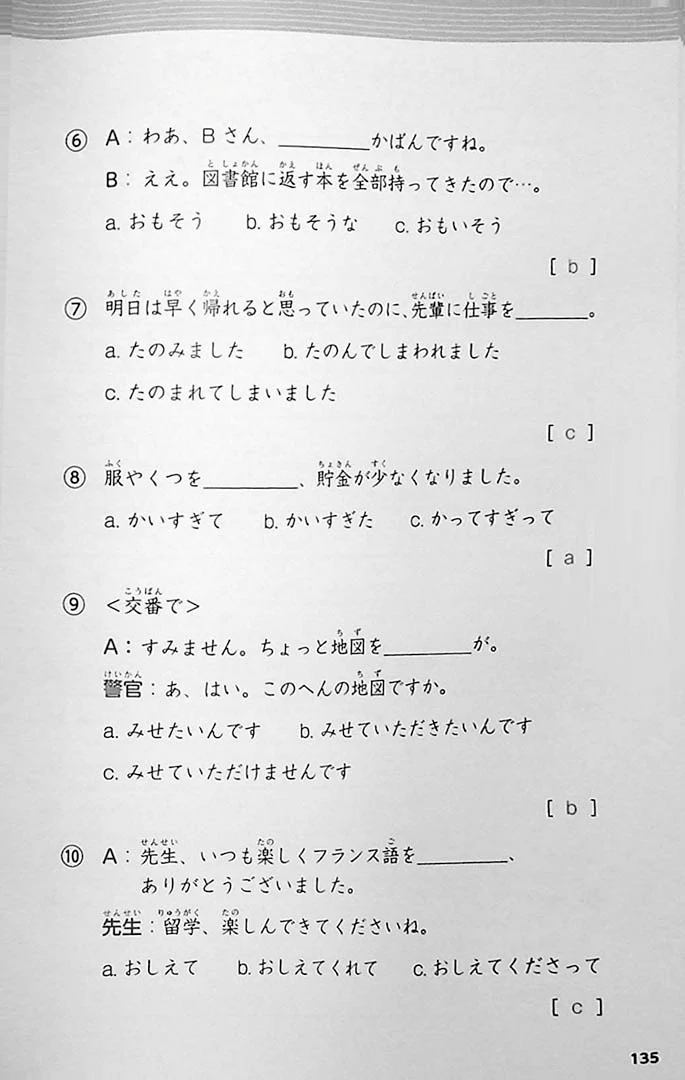 ⑥ A：わあ、Bさん、________かばんですね。
B：ええ。図書館に返す本を全部持ってきたので…。
a. おもそう b. おもそうな c. おもいそう
[ b ]
⑦ 明日は早く帰れると思っていたのに、先輩に仕事を________。
a. たのみました b. たのんでしまわれました
c. たのまれてしまいました
[ c ]
⑧ 服やくつを________、貯金が少なくなりました。
a. かいすぎて b. かいすぎた c. かってすぎって
[ a ]
⑨ ＜交番で＞
A：すみません。ちょっと地図を________が。
警官：あ、はい。このへんの地図ですか。
a. みせたいんです b. みせていただきたいんです
c. みせていただけませんです
[ b ]
⑩ A：先生、いつも楽しくフランス語を________、
ありがとうございました。
先生：留学、楽しんできてくださいね。
a. おしえて b. おしえてくれて c. おしえてくださって
[ c ]
135